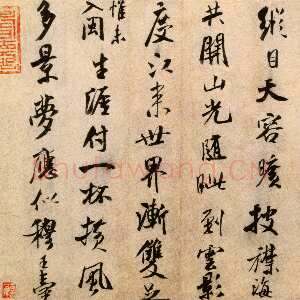 縱目天容曠披襟海
共開山光隨眺到雲影
度江来世界漸雙足
惟未
入閩生涯付一杯横風
多景夢應似穆王臺